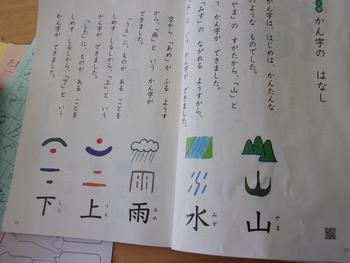 かん字の はなし
かん字は、はじめは、かんたんな
のような ものでした。
やま」の すがたから、「山」と
う かん字が できました。
「みず」の ながれる ようすから、
「水」と いう かん字が できました。
空から 「あめ」が ふる ようす
から、「雨」と いう かん字が
できました。
「うえ」に ものが ある ことを
しめす しるしから、「上」と いう
かん字が できました。
「した」に ものが ある ことを
しめす しるしから、「下」と いう
かん字が できました。
山 やま
水 みず
雨 あめ
上 うえ
下 した